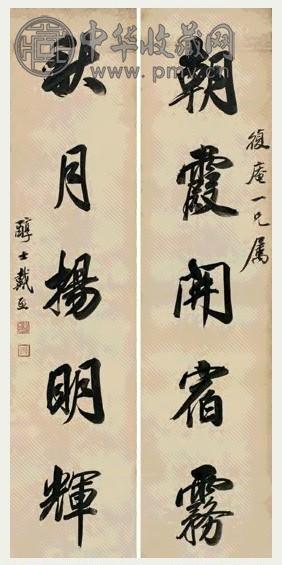 中华收藏网
復庵一兄属
朝霞開宿霧
秋月揚明輝
醇士戴熙